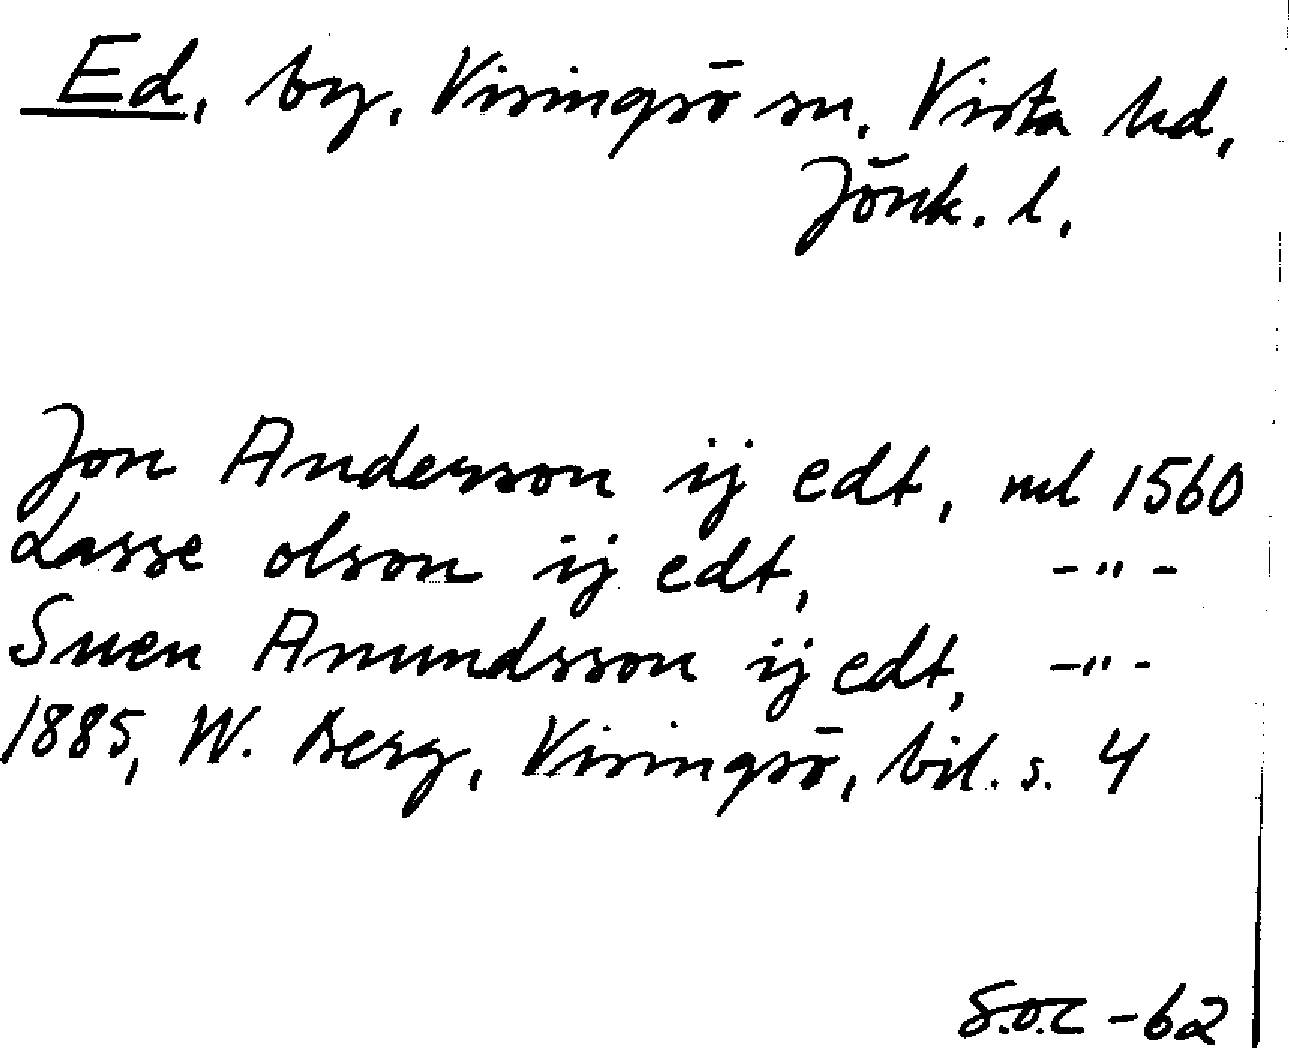 Ed, by, Visingsö sn, Vista hd,
Jönk. l.
Jon Anderson ij edt, ml 1560
Lasse olson ij edt, -"-
Suen Amundsson ij edt, -"-
1885, W. Berg, Visingsö, bil. s. 4
S.O.C -62